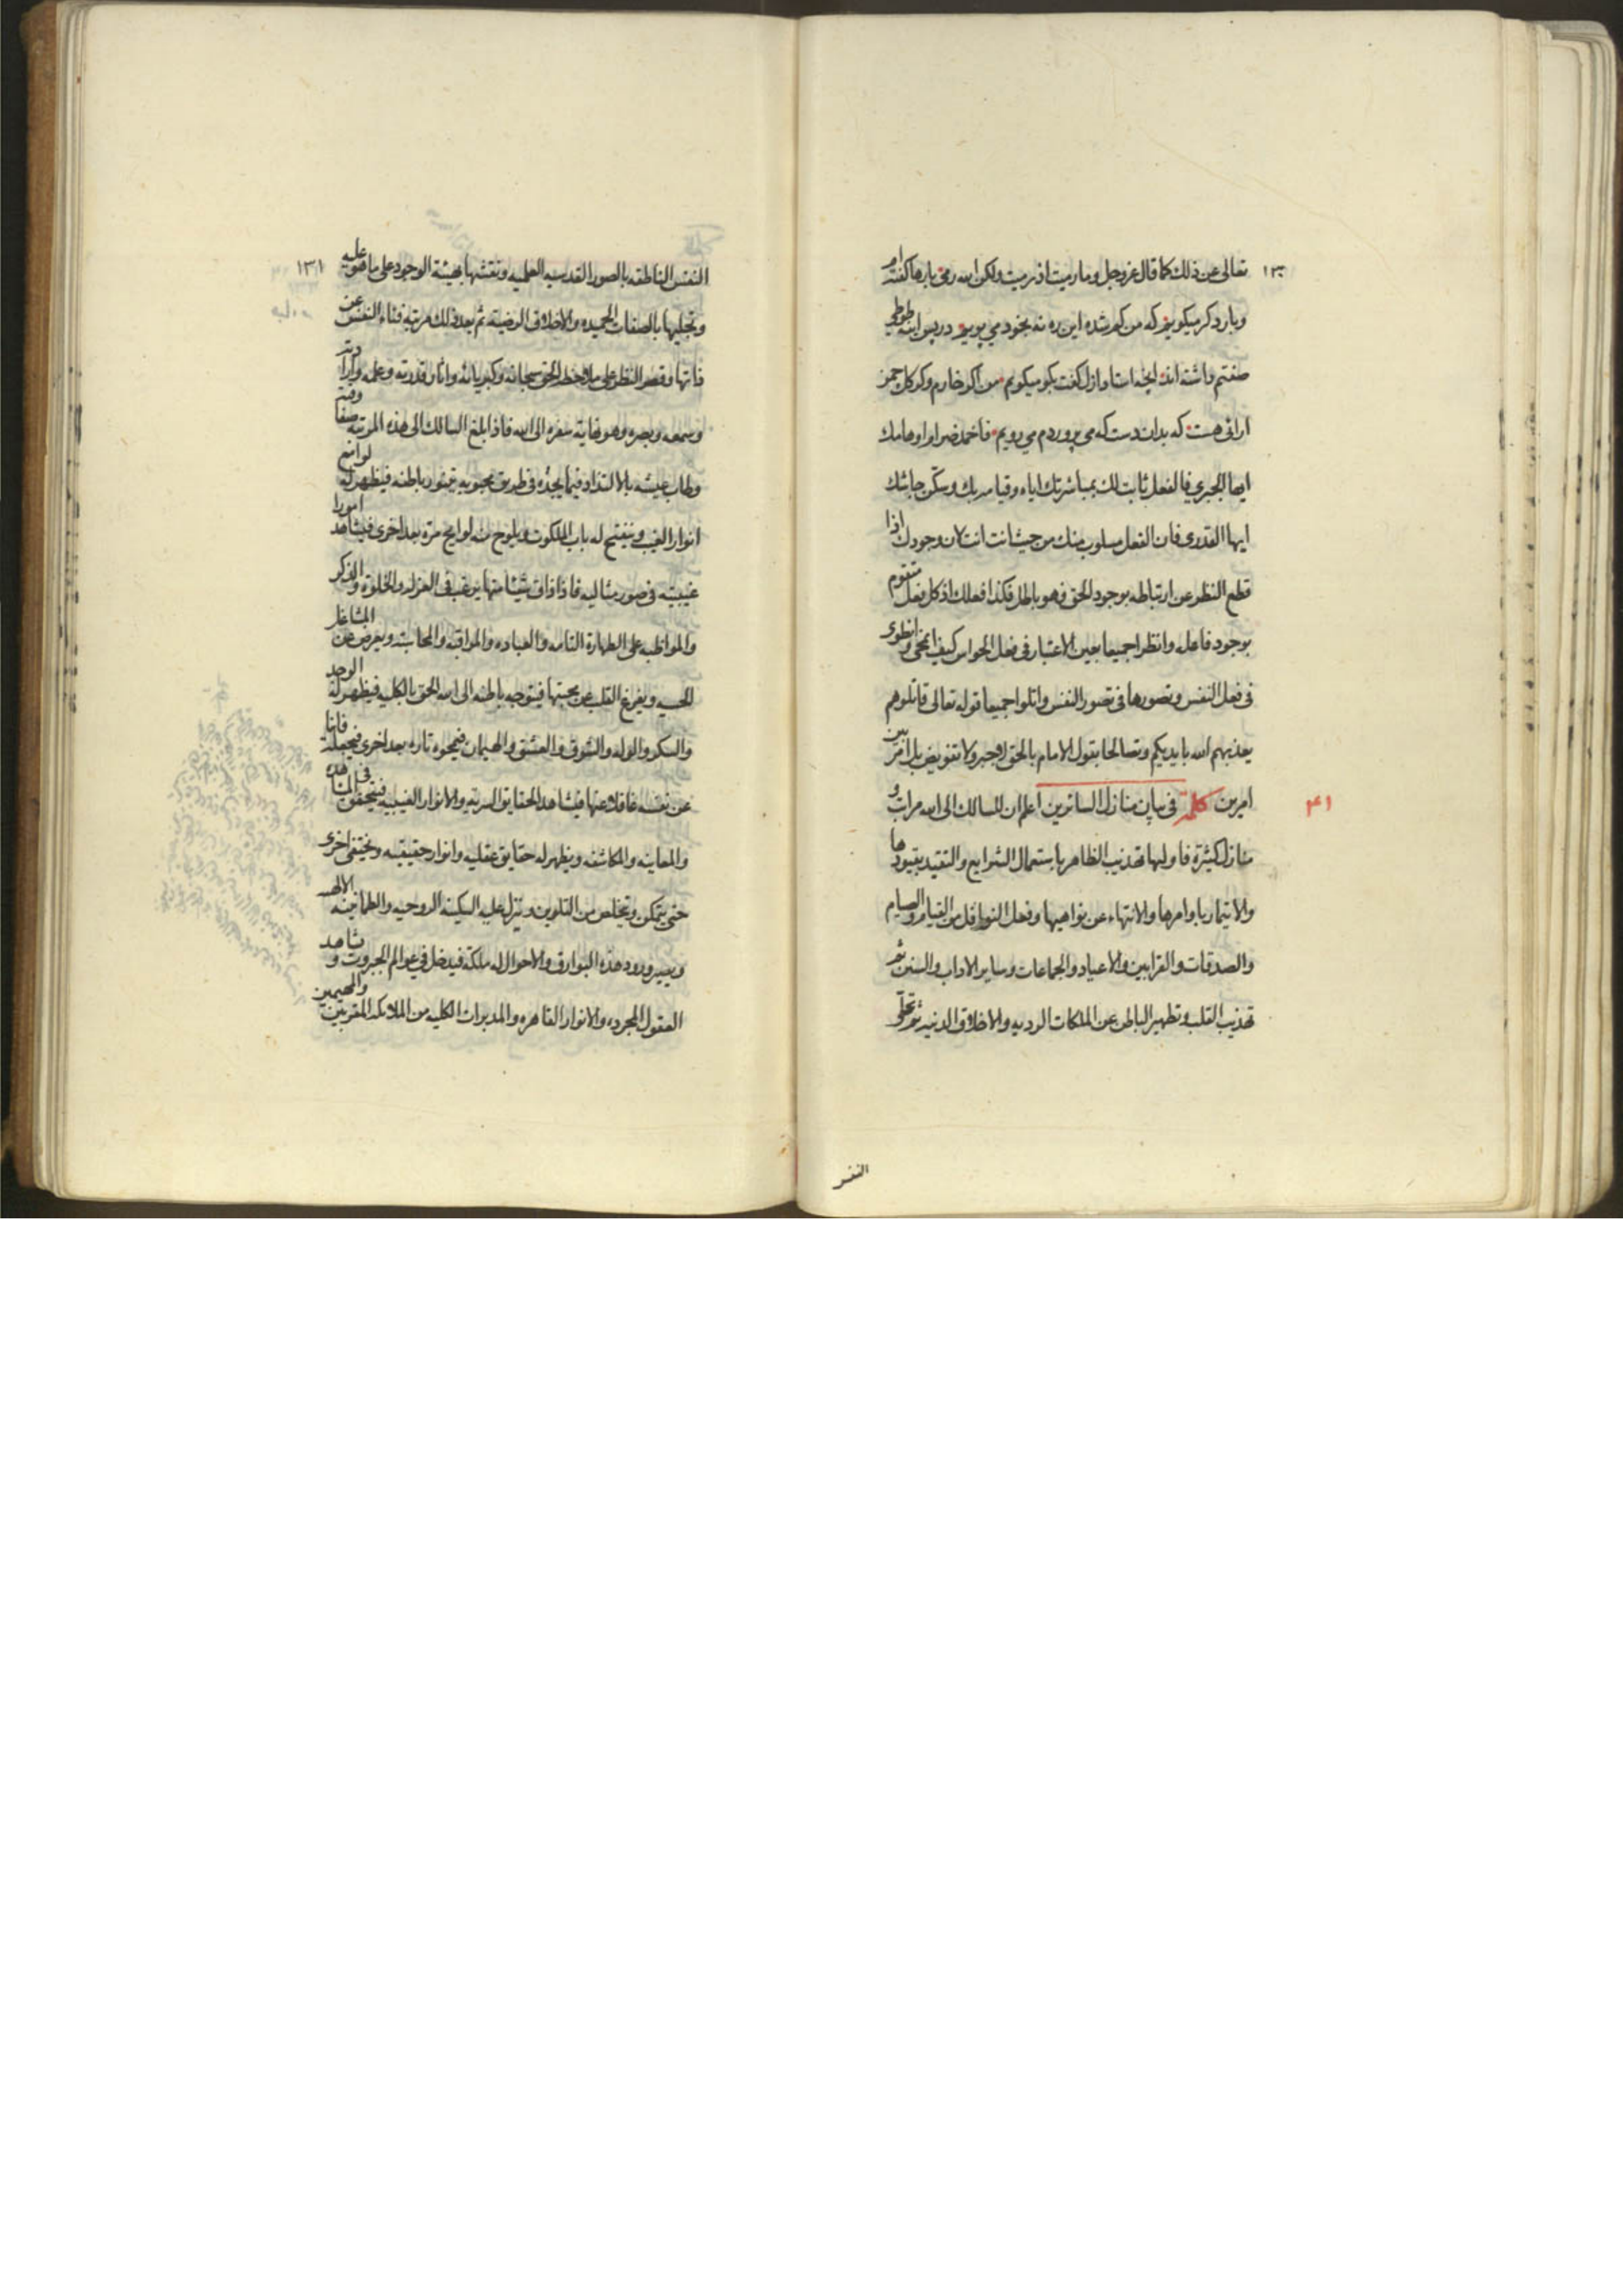 ١٣٠
تعالى عن ذلك كما قال عز وجل وما رميت اذ رميت ولكن الله رمى بارها كفته ام
وبار دكر ميكويم كه من كم شده اين ره نه بخود مي پويم در پس اينه طوطي
صفتم داشته اند انچه استاد ازل كفت بكو ميكويم من اكر خارم وكر كل چمن
ارائي هست كه بدان دست كه مي پروردم مي رويم فاخمد ضرام اوهامك
ايها الجبري فالفعل ثابت لك بمباشرتك اياه وقيامه بك وسكن جاشك
ايها القدري فان الفعل مسلوب منك من حيث انت انت لان وجودك اذا
قطع النظر عن ارتباطه بوجود الحق فهو باطل فكذا فعلك اذ كل فعل متقوم
بوجود فاعله وانظرا جميعا بعين الاعتبار في فعل الحواس كيف انمحى وانطوى
في فعل النفس وتصورها في تصور النفس واتلوا جميعا قوله تعالى قاتلوهم
يعذبهم الله بايديكم وتصالحا بقول الامام بالحق لا جبر ولا تفويض بل امر بين
امرين كلمة في بيان منازل السائرين اعلم ان للسالك الى الله مراتب و
٤١
منازل كثيرة فاولها تهذيب الظاهر باستعمال الشرايع والتقيد بقيودها
والايتمار باوامرها والانتهاء عن نواهيها وفعل النوافل من القيام والصيام
والصدقات والقرابين والاعياد والجماعات وساير الاداب والسنن ثم
تهذيب القلب وتطهير الباطن عن الملكات الرديه والاخلاق الدنيه ثم تحلي
النفس
١٣١
النفس الناطقه بالصور القدسيه العلميه ونقشها بهيئة الوجود على ما هو عليه
وتحليها بالصفات الحميده والاخلاق الرضية ثم بعد ذلك مرتبة فناء النفس عن
ذاتها وقصر النظر على ملاحظه الحق سبحانه وكبريائه واثار قدرته وعلمه وارادته
وسمعه وبصره وهو نهاية سفره الى الله فاذا بلغ السالك الى هذه المرتبه وصفا وقته
وطاب عيشه بالالتذاذ فيما يجده في طريق محبوبه يتنور باطنه فيظهر له لوامع
انوار الغيب وينفتح له باب الملكوت ويلوح منه لوايح مرة بعد اخرى فيشاهد امورا
غيبيته في صور مثاليه فاذا ذاق شيئا منها يرغب في العزله والخلوة والذكر
والمواظبه على الطهارة التامه والعباده والمراقبه والمحاسبته ويعرض عن المشاغل
الحسيه ويفرغ القلب عن محبتها فيتوجه باطنه الى الله الحق بالكليه فيظهر له الوجد
والسكر والوله والشوق والعشق والهيمان فيمحوه تاره بعد اخرى فيجعله فانيا
عن نفسه غافلا عنها فيشاهد الحقايق السريه والانوار الغيبيه فيتحقق في المشاهده
والمعاينه والمكاشفه ويظهر له حقايق عقليه وانوار حقيقيه وتختفي اخرى
حتى يتمكن ويتخلص من التلوين وينزل عليه السكينه الروحيه والطمانينه الالهيه
ويصير ورود هذه البوارق والاحوال له ملكة فيدخل في عوالم الجبروت ويشاهد
العقول المجرده والانوار القاهره والمدبرات الكليه من الملائكه المقربين والمهيمين